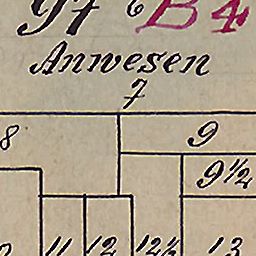 B 4
Anwesen
7
8 9
9½
11 12 12½ 13